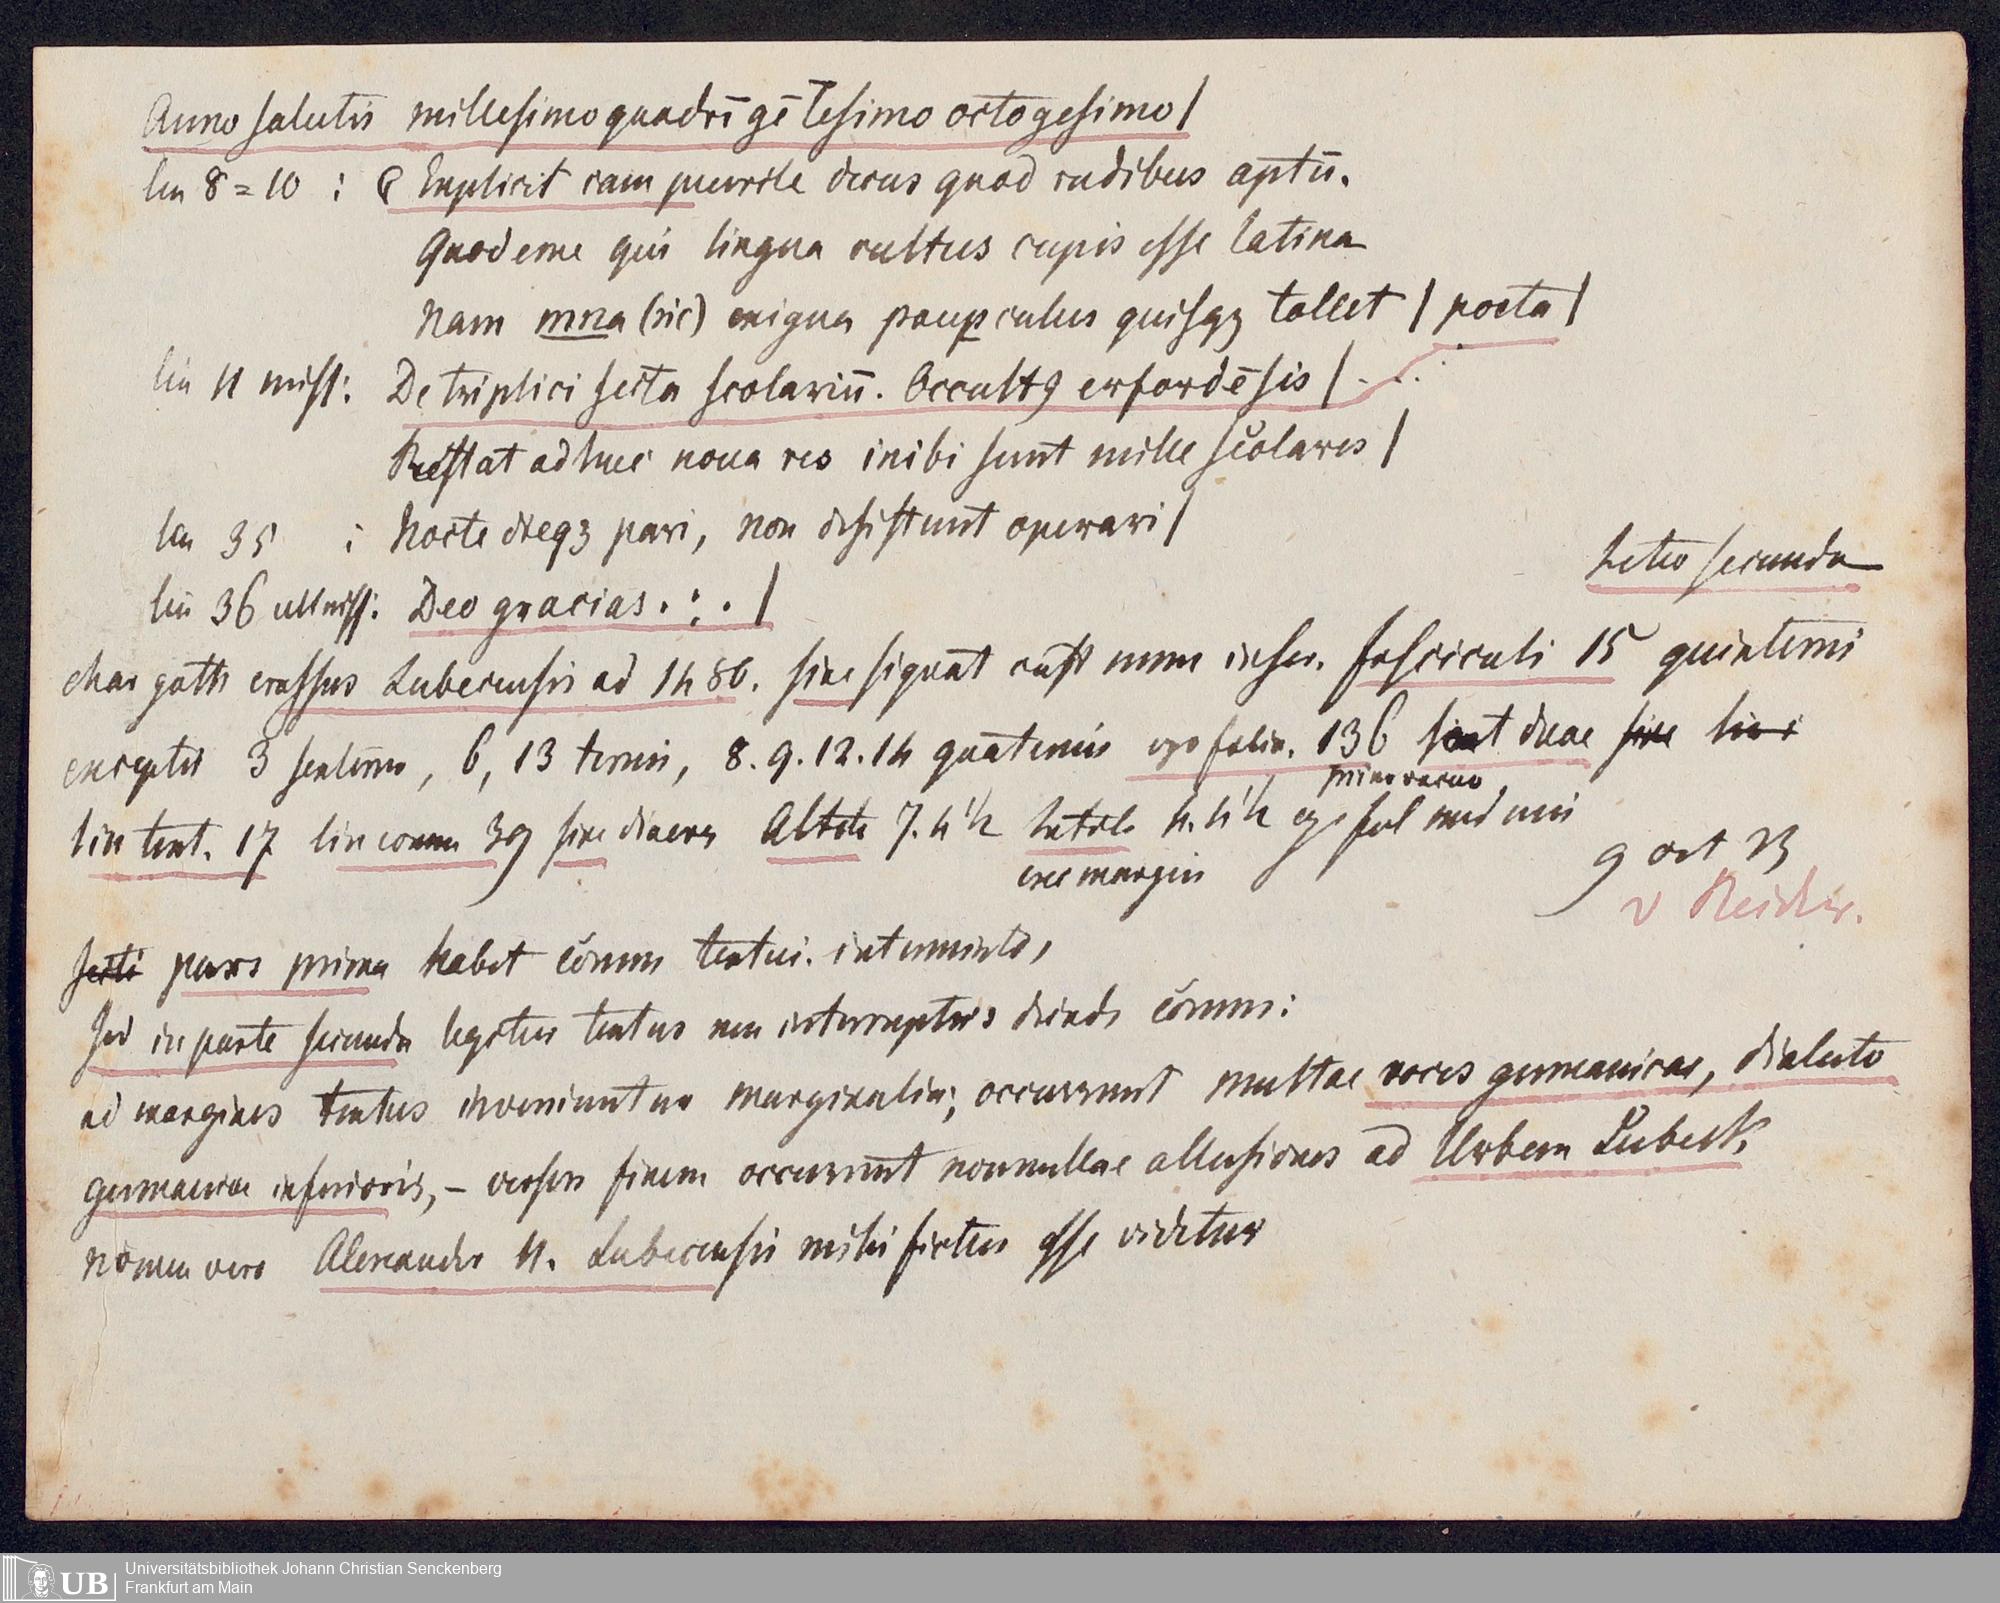 Anno salutis millesimoquadrīgētesimo octogesimo/
lin 8=10 : Explicit iam puerile decus quod rudibus aptū.
Quod eme qui lingua cultus cupis esse latina
Nam mna (sic) exigua paupculus quisqꝫ tollet / poeta /
lin 11 miss: De triplici secta scolariū. Occultꝯ erfordēsis /
Restat adhuc noua res inibi sunt mille scolares /
lin 35 : Nocte dieqꝫ pari, non desistunt operari /
lin 36 ult miss: Deo gracias . : . /
Letio secunda
char goth crassus Lubecensis ad 1486. sine signat cust num fasciculi 15 quinterni
exceptis 3 sexterno, 6, 13 ternis, 8. 9. 12. 14 quaternis ego folia. 136 sunt duae sine lin
primo vacuo
lin text. 17 lin comm 39 sine Altit 7. 4½ Latit 4. 4½ fol
exc margin
9 oct 23
v Reider.
pars prima habet comm textui
sed in parte secunda legitur textus non interruptus deinde comm:
ad margines textus inveniuntur marginalia, occurrunt multae voces germanicae, dialecto
germaniae inferioris, – versus finem occurrunt nonnullae allusiones ad Urbem Lubeck,
nomen vero Alexander H. Lubecensis mihi fictus esse videtur
Universitätsbibliothek Johann Christian Senckenberg
Frankfurt am Main
UB